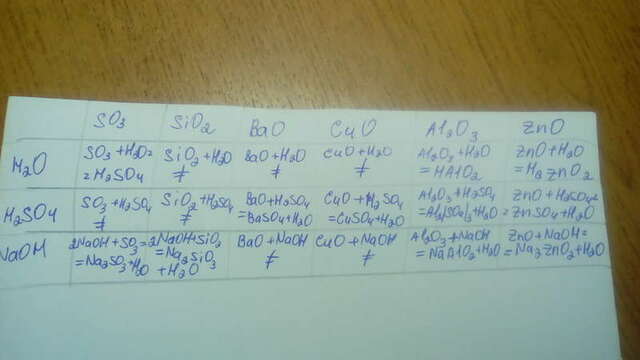 SO3 SiO2 BaO CuO Al2O3 ZnO
H2O
SO3 + H2O =
= H2SO4
SiO2 + H2O
≠
BaO + H2O
≠
CuO + H2O
≠
Al2O3 + H2O
= HAlO2
ZnO + H2O
= H2ZnO2
H2SO4
SO3 + H2SO4
≠
SiO2 + H2SO4
≠
BaO + H2SO4
= BaSO4 + H2O
CuO + H2SO4
= CuSO4 + H2O
Al2O3 + H2SO4
= Al2(SO4)3 + H2O
ZnO + H2SO4 =
= ZnSO4 + H2O
NaOH
2NaOH + SO3 =
= Na2SO3 + H2O
2NaOH + SiO2
= Na2SiO3
+ H2O
BaO + NaOH
≠
CuO + NaOH
≠
Al2O3 + NaOH
= NaAlO2 + H2O
ZnO + NaOH =
= Na2ZnO2 + H2O